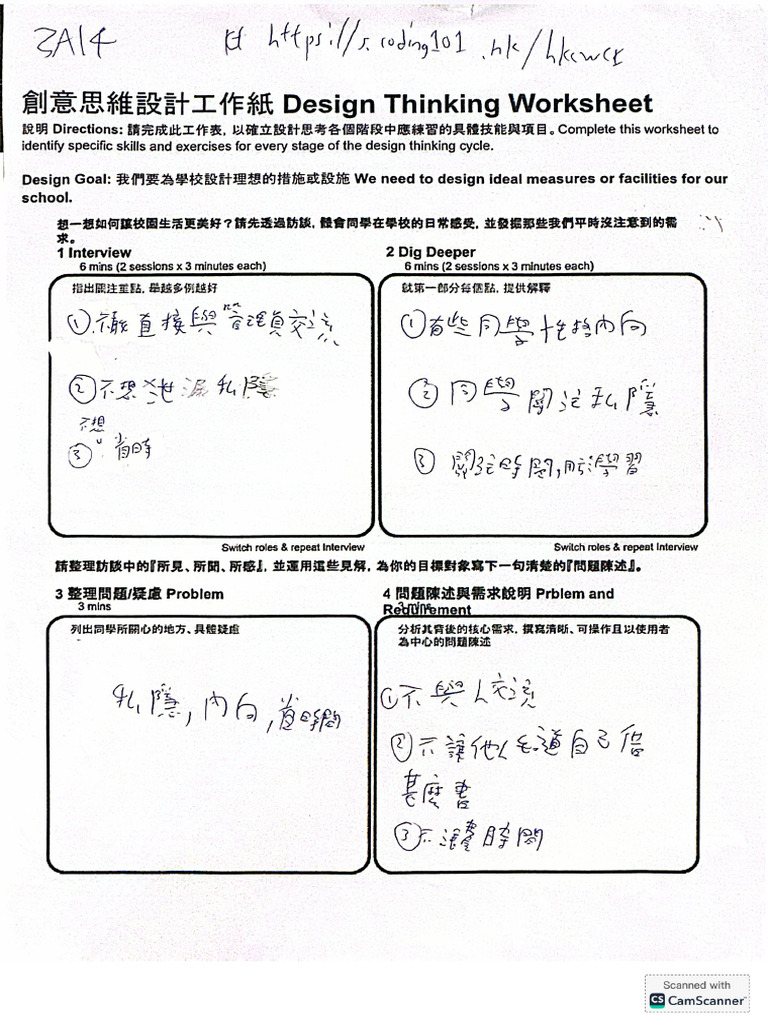 3A14 https://s.coding101.hk/hkcwcc
創意思維設計工作紙 Design Thinking Worksheet
說明 Directions: 請完成此工作表，以確立設計思考各個階段中應練習的具體技能與項目。Complete this worksheet to
identify specific skills and exercises for every stage of the design thinking cycle.
Design Goal: 我們要為學校設計理想的措施或設施 We need to design ideal measures or facilities for our
school.
想一想如何讓校園生活更美好？請先透過訪談，體會同學在學校的日常感受，並發掘那些我們平時沒注意到的需
求。
1 Interview
6 mins (2 sessions x 3 minutes each)
指出關注重點，舉越多例越好
① 不想直接與管理員交流
② 不想泄漏私隱
不想
③ 省時
Switch roles & repeat Interview
2 Dig Deeper
6 mins (2 sessions x 3 minutes each)
就第一部分每個點，提供解釋
① 有些同學性格內向
② 同學關注私隱
③ 關注時間，忙學習
Switch roles & repeat Interview
請整理訪談中的『所見、所聞、所感』，並運用這些見解，為你的目標對象寫下一句清楚的『問題陳述』。
3 整理問題/疑慮 Problem
3 mins
列出同學所關心的地方、具體疑慮
私隱，內向，省時間
4 問題陳述與需求說明 Prblem and
Requirement
3 mins
分析其背後的核心需求，撰寫清晰、可操作且以使用者
為中心的問題陳述
① 不與人交流
② 不讓他人知道自己借
甚麼書
③ 不浪費時間
Scanned with
CS CamScanner